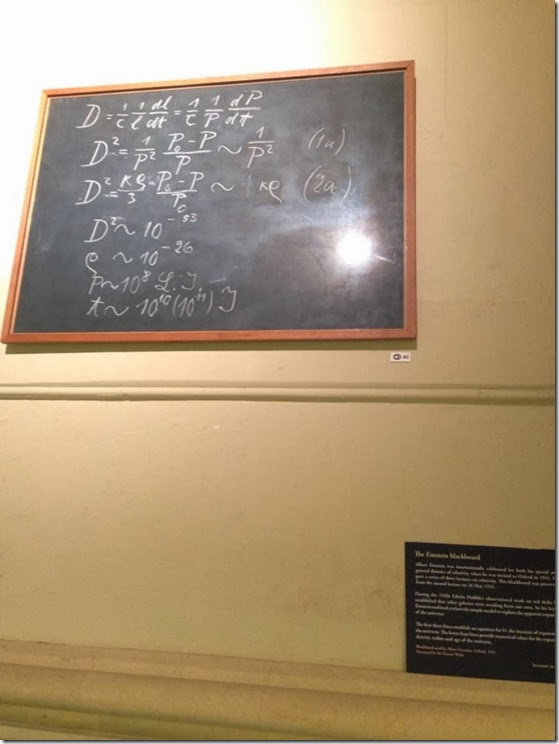 D = 1/c 1/l dl/dt = 1/c 1/P dP/dt
D² = 1/P² P₀-P/P ~ 1/P² (1a)
D² = κρ/3 P₀-P/P₀ ~ κρ (2a)
D² ~ 10⁻⁵³
ρ ~ 10⁻²⁶
P ~ 10⁸ L. J.
t ~ 10¹⁰ (10¹¹) J
40
The Einstein blackboard
Albert Einstein was internationally celebrated for both his special
general theories of relativity when he was invited to Oxford in 1931.
gave a series of three lectures on relativity. This blackboard was
from the second lecture on 16 May 1931.
During the 1920s Edwin Hubble's observational work on red shifts
established that other galaxies were receding from our own. In his
Einstein outlined a relatively simple model to explain the apparent
of the universe.
The first three lines establish an equation for D, the measure of expansion
the universe. The lower four lines provide numerical values for the
density, radius and age of the universe.
Blackboard used by Albert Einstein, Oxford, 1931